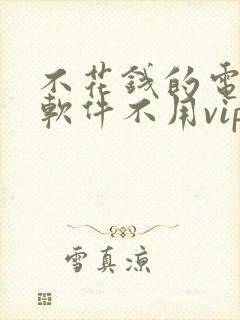 不花錢的電
軟件不用vip
雪真涼